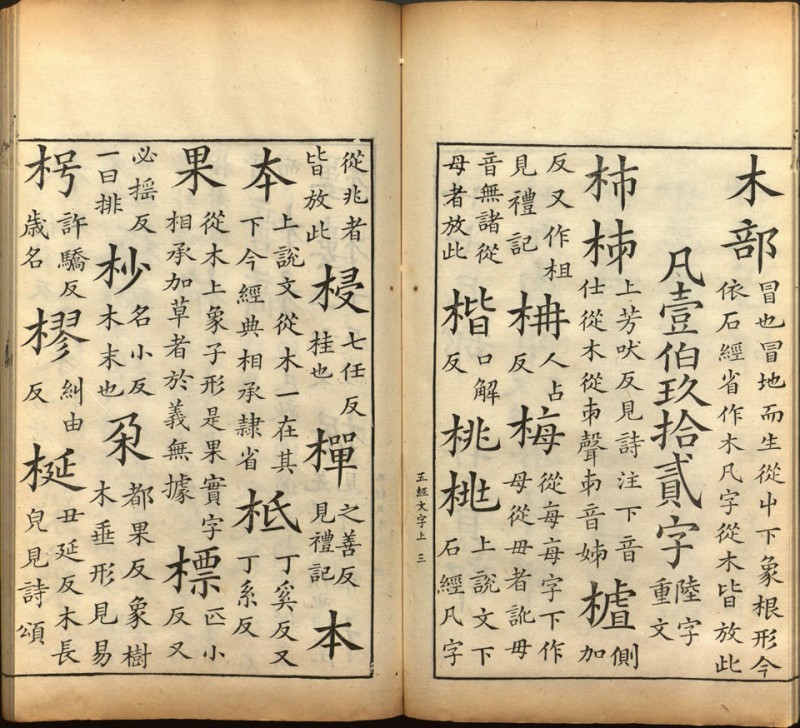 木部冒也冒地而生從屮下象根形今依石經省作木凡字從木皆放此
凡壹伯玖拾貳字陸字重文
杮柹上芳吠反見詩注下音仕從木從𠂔聲𠂔音姊樝側加
反又作柤見禮記枏人占反梅從每每字下作母從毋者訛毋
音無諸從母者放此楷口解反桃上說文下石經凡字
五經文字上 三
從兆者皆放此梫七任反桂也樿之善反見禮記本
夲上說文從木一在其下今經典相承隸省柢丁奚反又丁系反
果從木上象子形是果實字相承加草者於義無據標匹小反又
必搖反一曰排杪名小反木末也朶都果反象樹木垂形見易
枵許驕反歲名樛糾由反梴丑延反木長皃見詩頌